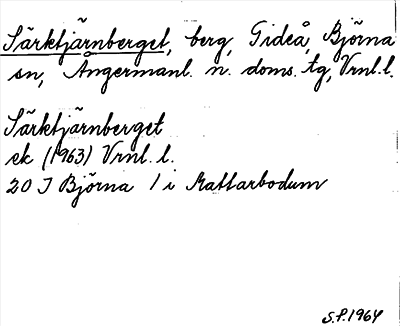 Särktjärnberget, berg, Gideå, Björna
sn, Ångermanl. n. doms. tg, Vrnl.l.
Särktjärnberget
ek (1963) Vrnl. l.
20 J Björna 1 i Mattarbodum
S.P. 1964